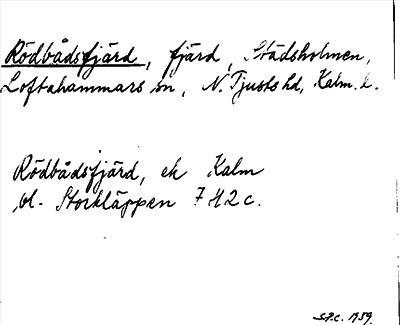 Rödbådsfjärd, fjärd, Städsholmen,
Loftahammars sn, N. Tjusts hd, Kalm. l.
Rödbådsfjärd, ek Kalm
bl. Storkläppen 7H2c.
S.P.C. 1959.